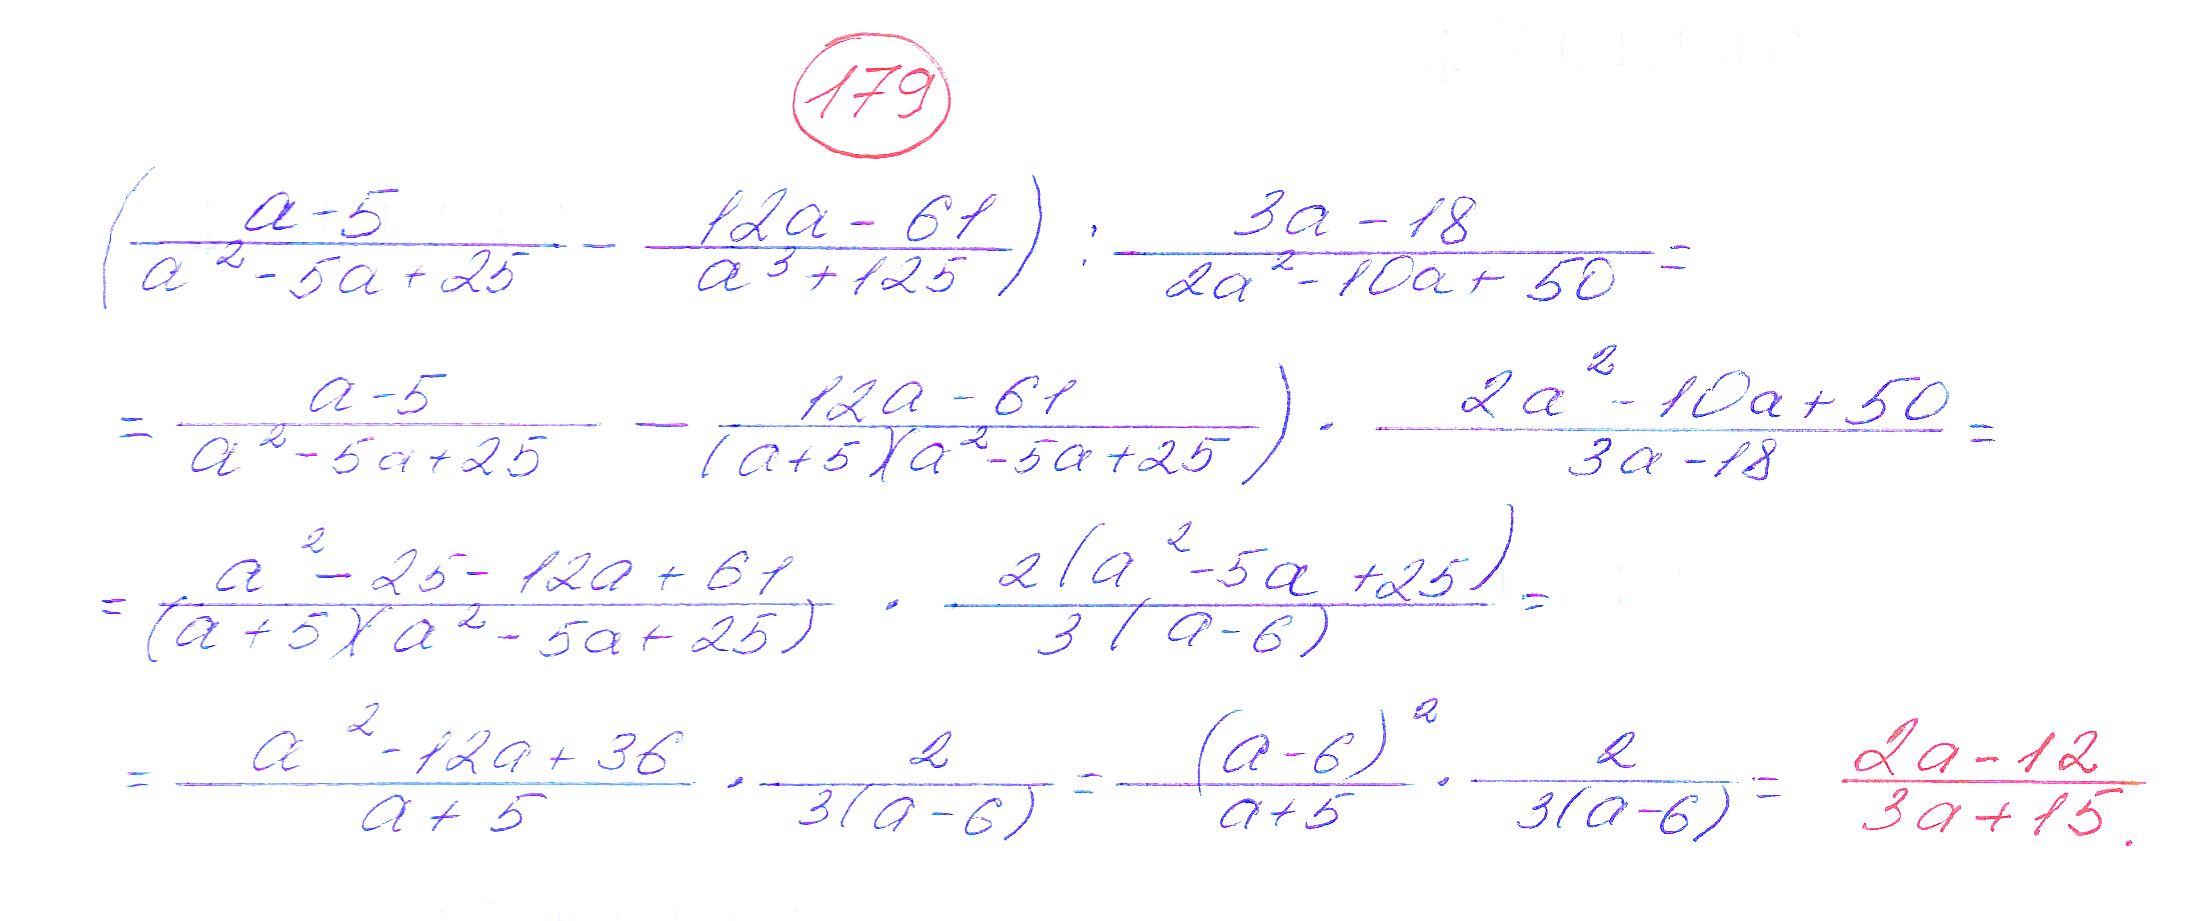 179
( (a-5)/(a²-5a+25) - (12a-61)/(a³+125) ) : (3a-18)/(2a²-10a+50) =
= (a-5)/(a²-5a+25) - (12a-61)/((a+5)(a²-5a+25) ) · (2a²-10a+50)/(3a-18) =
= (a²-25-12a+61)/((a+5)(a²-5a+25)) · 2(a²-5a+25)/(3(a-6)) =
= (a²-12a+36)/(a+5) · 2/(3(a-6)) = (a-6)²/(a+5) · 2/(3(a-6)) = (2a-12)/(3a+15).